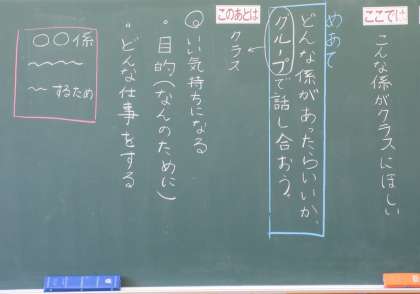 ここでは
こんな係がクラスにほしい
めあて
どんな係があったらいいか、
グループで話し合おう。
このあとは
クラス
◎いい気持ちになる
・目的(なんのために)
・どんな仕事をする
〇〇係
～～～～
～するため